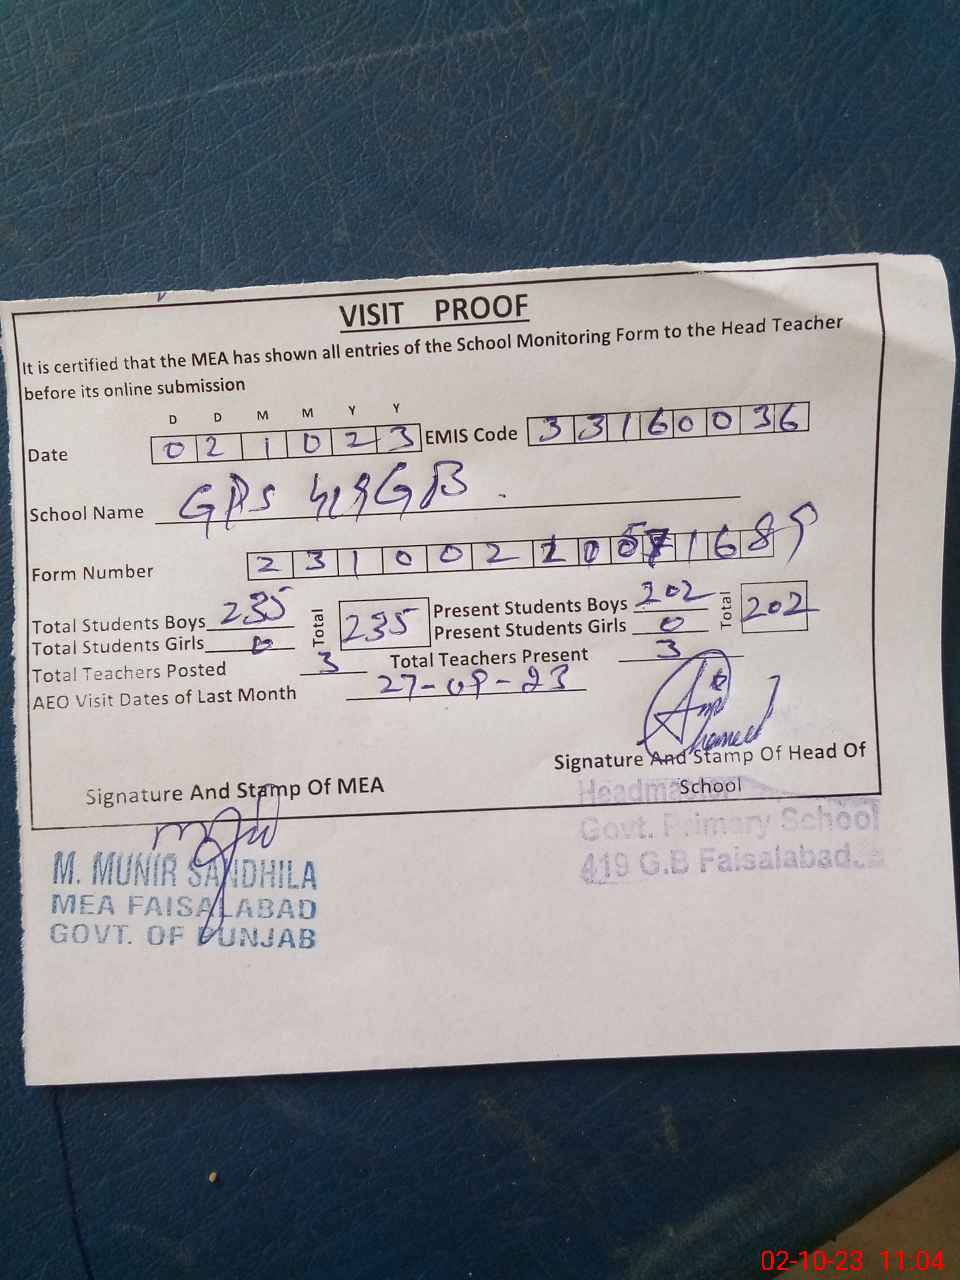 VISIT PROOF
It is certified that the MEA has shown all entries of the School Monitoring Form to the Head Teacher
before its online submission
D D M M Y Y
Date 0 2 1 0 2 3 EMIS Code 3 3 1 6 0 0 3 6
School Name GPS 419 GB
Form Number 2 3 1 0 0 2 1 0 0 1 6 8 9
Total Students Boys 235 Total 235 Present Students Boys 202 Total 202
Total Students Girls 0 Present Students Girls 0
Total Teachers Posted 3 Total Teachers Present 3
AEO Visit Dates of Last Month 27-09-23
Signature And Stamp Of MEA
Signature And Stamp Of Head Of
School
Headmaster
Govt. Primary School
419 G.B Faisalabad.
M. MUNIR SANDHILA
MEA FAISALABAD
GOVT. OF PUNJAB
02-10-23 11:04